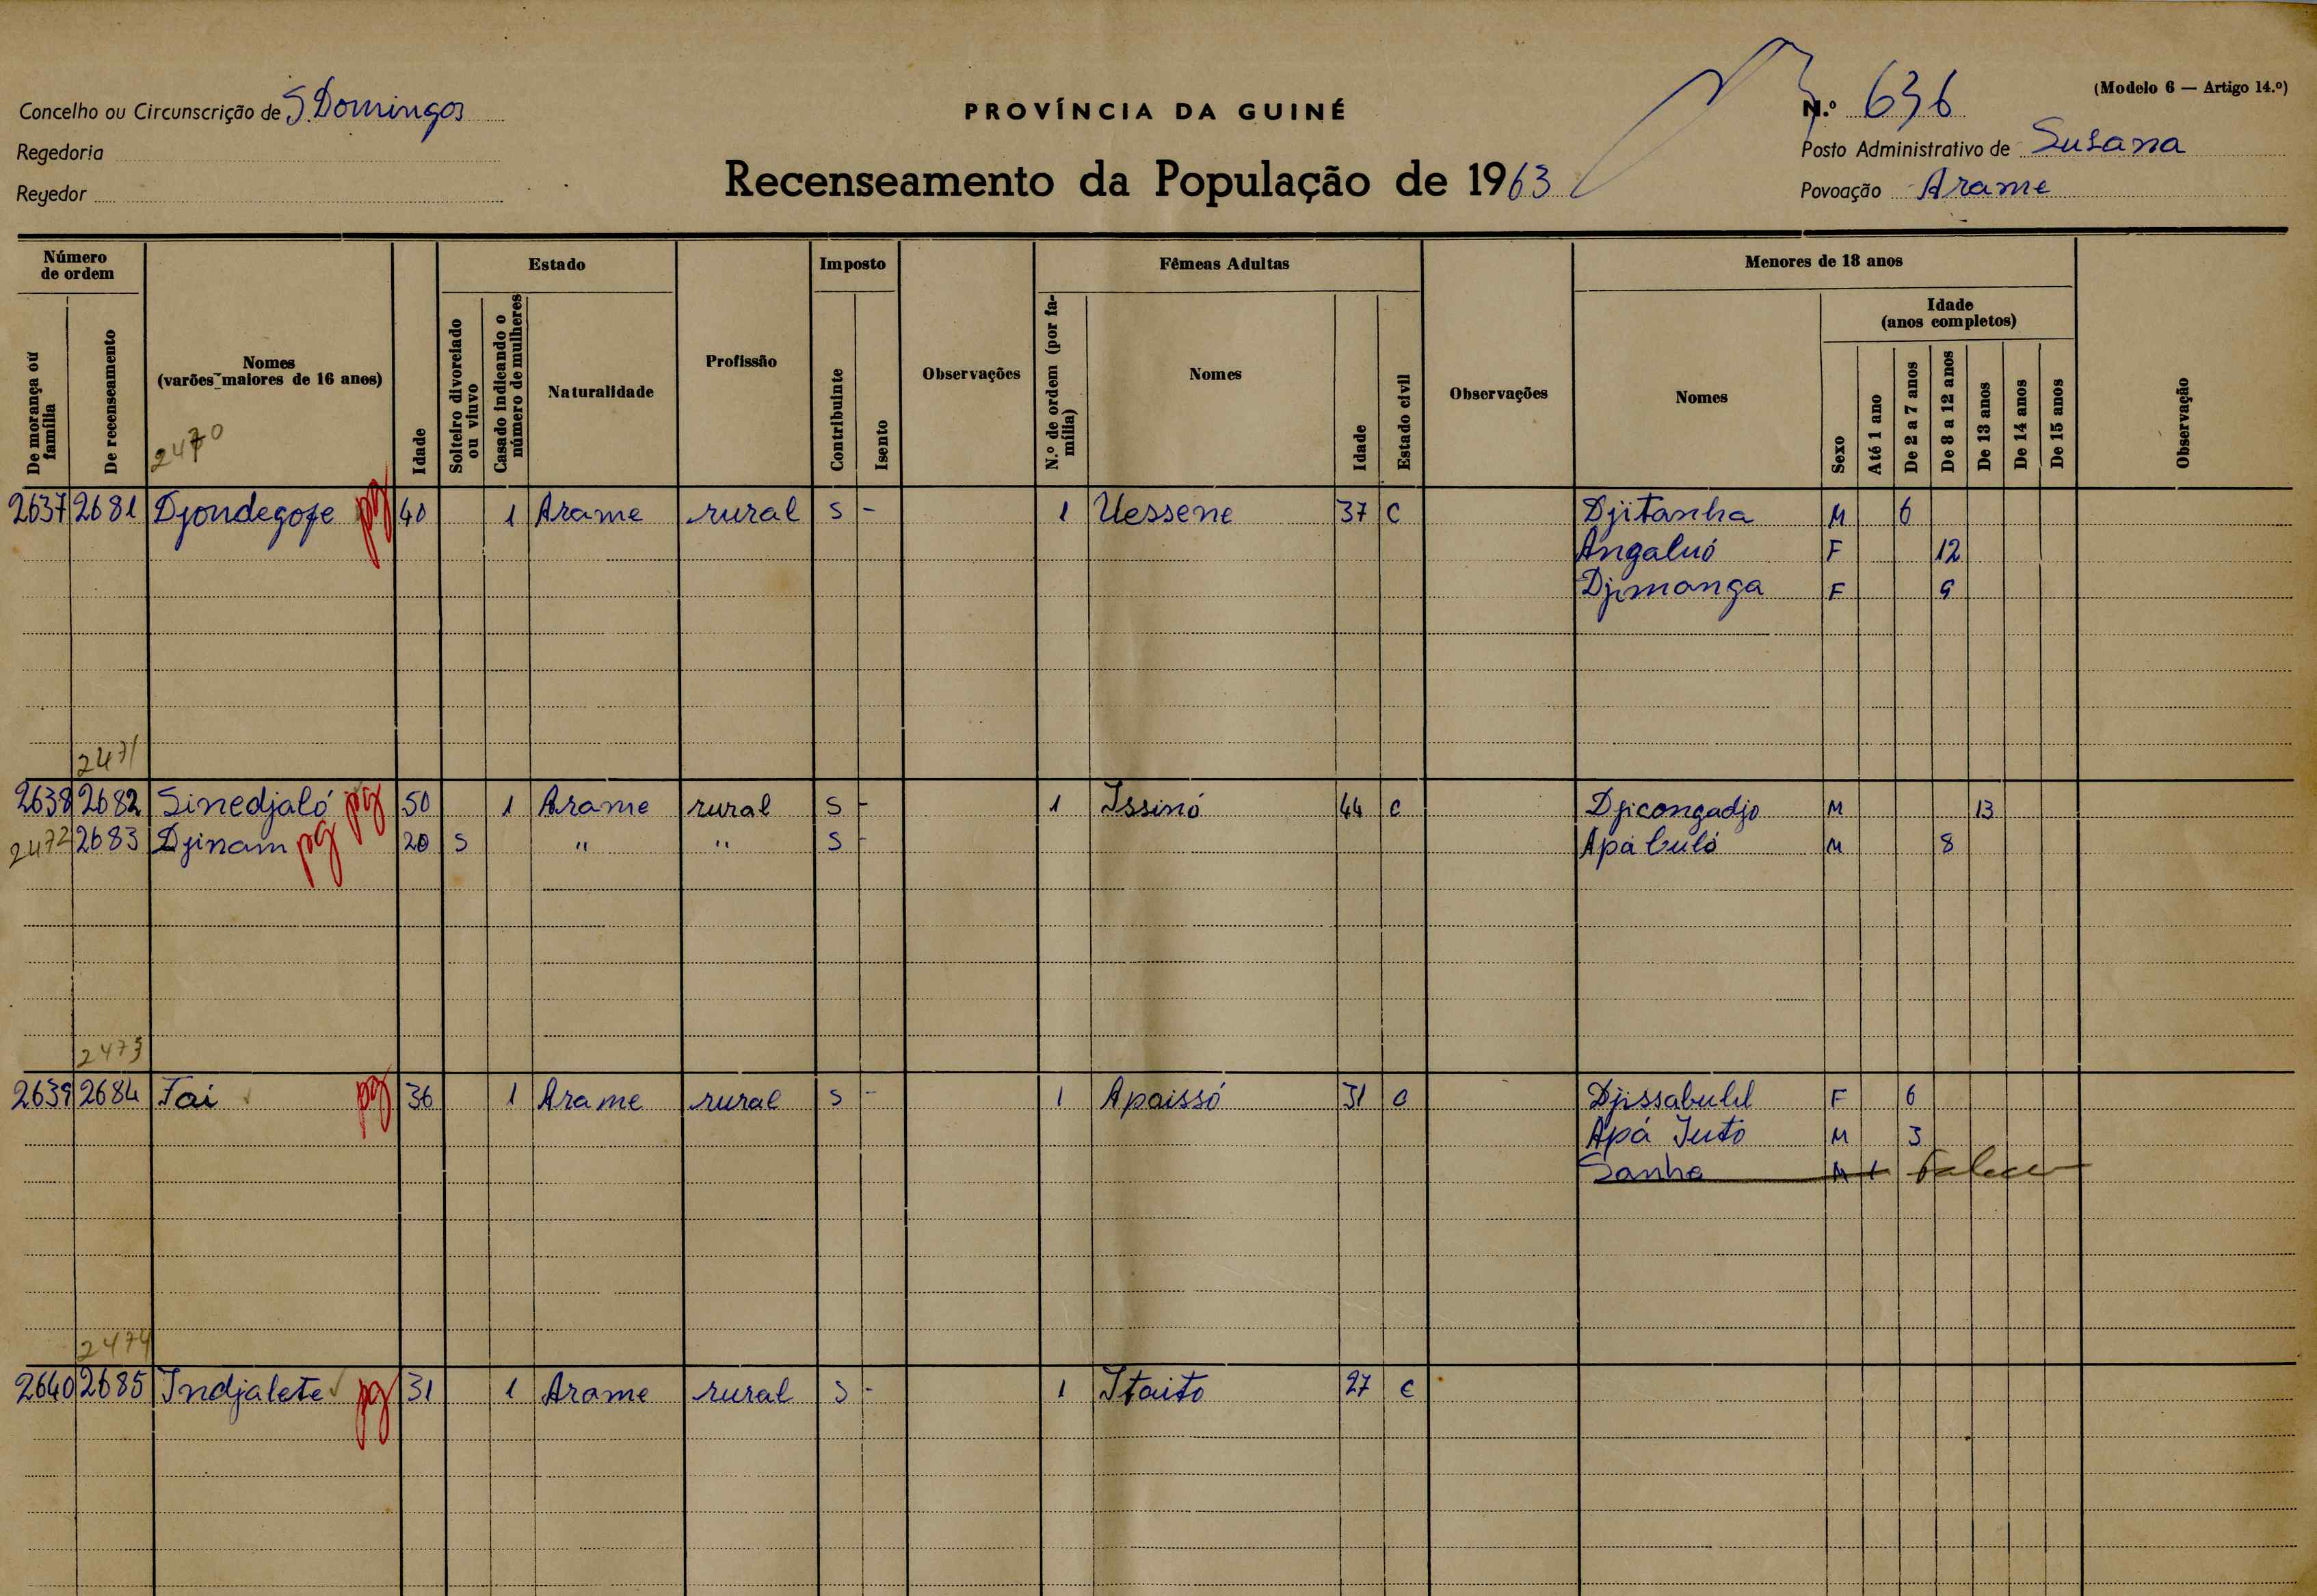 (Modelo 6 — Artigo 14.º)
Concelho ou Circunscrição de S. Domingos
Regedoria
Regedor
PROVÍNCIA DA GUINÉ
Recenseamento da População de 1963
N.º 636
Posto Administrativo de Susana
Povoação Arame
Número de ordem
De morança ou família
De recenseamento
Nomes
(varões maiores de 16 anos)
2470
Idade
Estado
Solteiro divorciado ou viuvo
Casado indicando o número de mulheres
Naturalidade
Profissão
Imposto
Contribuinte
Isento
Observações
Fêmeas Adultas
N.º de ordem (por família)
Nomes
Idade
Estado civil
Observações
Menores de 18 anos
Nomes
Sexo
Idade
(anos completos)
Até 1 ano
De 2 a 7 anos
De 8 a 12 anos
De 13 anos
De 14 anos
De 15 anos
Observação
2637 2681 Djondegofe pg 40 1 Arame rural S - 1 Uessene 37 C Djitanha M 6
Angaluó F 12
Djimanga F 9
2471
2638 2682 Sinedjaló pg 50 1 Arame rural S - 1 Issinó 44 C Djicongadjo M 13
2472 2683 Djinam pg 20 S " " S - Apá buló M 8
2473
2639 2684 Tai pg 36 1 Arame rural S - 1 Apaissó 31 C F 6
Apá Juto M 3
Sanha M 1 Falec
2474
2640 2685 Indjalete pg 31 1 Arame rural S - 1 Itaito 27 C